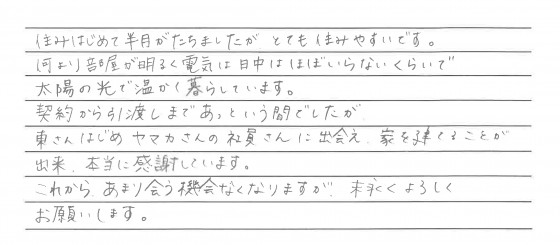 住みはじめて半月がたちましたが、とても住みやすいです。
何より部屋が明るく電気は日中はほぼいらないくらいで
太陽の光で温かく暮らしています。
契約から引渡しまであっという間でしたが、
東さんはじめ ヤマカさんの社員さんに出会え、家を建てることが
出来、本当に感謝しています。
これから、あまり会う機会なくなりますが、末永くよろしく
お願いします。